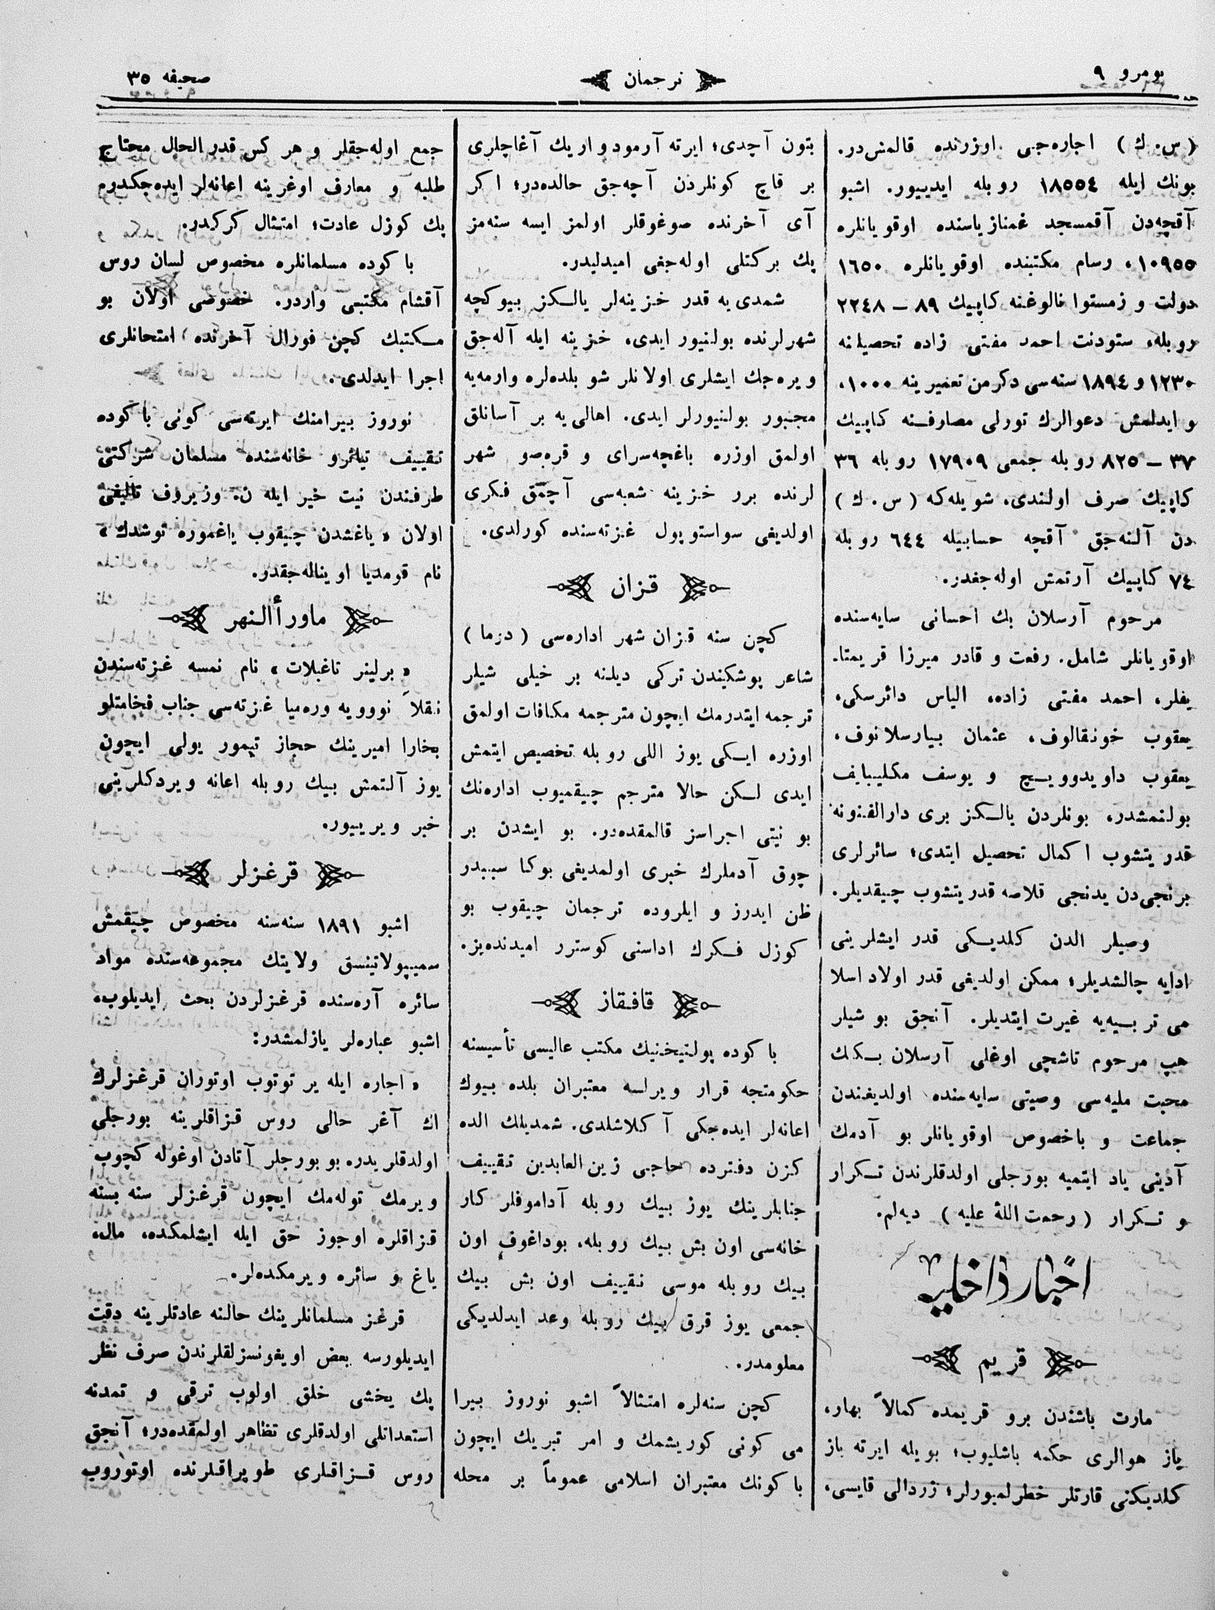 نومرو ٩
ترجمان
صحیفه ٣٥
(س. ك) اجاره‌جی اوزرنده قالمش‌در.
بونك ایله ١٨٥٥٤ روبله ایدییور. اشبو
آقچه‌دن آقمسجد غمنازیاسنده اوقویانلره
١٠٩٥٥، رسام مکتبنده اوقویانلره ١٦٥٠
دولت و زمستوا نالوغنه کاپیك ٨٩ — ٢٢٤٨
روبله، ستودنت احمد مفتی زاده تحصیلنه
١٢٣٠ و ١٨٩٤ سنه‌سی دکرمن تعمیرینه ١٠٠٠،
و ایدلمش دعوالرك تورلی مصارفنه کاپیك
٣٧ — ٨٢٥ روبله جمعی ١٧٩٠٩ روبله ٣٦
کاپیك صرف اولندی، شویله‌که (س. ك)
دن آلنه‌جق آقچه حسابیله ٦٤٤ روبله
٧٤ کاپیك آرتمش اوله‌جقدر.
مرحوم آرسلان بك احسانی سایه‌سنده
اوقویانلر شامل، رفعت و قادر میرزا قریمتا‌ـ
یفلر، احمد مفتی زاده، الیاس دائرسکی،
یعقوب خونقالوف، عثمان بیارسلانوف،
یعقوب داویدوویچ و یوسف مکلیبایف
بولنمشدر، بونلردن یالکز بری دارالفنونه
قدر یتشوب اکمال تحصیل ایتدی؛ سائرلری
برنجی‌دن یدنجی قلاصه قدر یتشوب چیقدیلر.
وصیلر الدن کلدیکی قدر ایشلرینی
ادایه چالشدیلر؛ ممکن اولدیغی قدر اولاد اسلا
می تربیه‌یه غیرت ایتدیلر. آنجق بو شیلر
هپ مرحوم تاشچی اوغلی آرسلان بکك
محبت ملیه‌سی وصیتی سایه‌سنده اولدیغندن
جماعت و باخصوص اوقویانلر بو آدمك
آدینی یاد ایتمیه بورجلی اولدقلرندن تکرار
و تکرار (رحمت اللهٔ علیه) دیه‌لم.
اخبار داخلیه
قریم
مارت باشندن برو قریمده کمالاً بهار،
یاز هوالری حکمه باشلیوب؛ بویله ایرته یاز
کلدیکنی قارتلر خطرلمیورلر؛ زردالی قایسی،
بتون آچدی؛ ایرته آرمود و اریك آغاچلری
بر قاچ کونلردن آچه‌جق حالده‌در؛ اکر
آی آخرنده صوغوقلر اولمز ایسه سنه‌مز
پك برکتلی اوله‌جغی امیدلیدر.
شمدی‌یه قدر خزینه‌لر یالکز بیوکچه
شهرلرنده بولنیور ایدی، خزینه ایله آله‌جق
ویره‌جك ایشلری اولانلر شو بلده‌لره وارمه‌یه
مجبور بولنیورلر ایدی. اهالی‌یه بر آسانلق
اولمق اوزره باغچه‌سرای و قره‌صو شهر
لرنده برر خزینه شعبه‌سی آچمق فکری
اولدیغی سواستوپول غزته‌سنده کورلدی.
قزان
کچن سنه قزان شهر اداره‌سی (دزما)
شاعر پوشکیندن ترکی دیلنه بر خیلی شیلر
ترجمه ایتدرمك ایچون مترجمه مکافات اولمق
اوزره ایکی یوز اللی روبله تخصیص ایتمش
ایدی لکن حالا مترجم چیقمیوب اداره‌نك
بو نیتی اجراسز قالمقده‌در. بو ایشدن بر
چوق آدملرك خبری اولمدیغی بوکا سببدر
ظن ایدرز و ایلروده ترجمان چیقوب بو
کوزل فکرك اداسنی کوسترر امیدنده‌یز.
قافقاز
باکوده پولتیخنیك مکتب عالیسی تأسیسنه
حکومتجه قرار ویرلسه معتبران بلده بیوك
اعانه‌لر ایده‌جکی آکلاشلدی. شمدیلك الده
کزن دفترده حاجی زین العابدین تقییف
جنابلرینك یوز بیك روبله آداموفلر کار
خانه‌سی اون بش بیك روبله، بوداغوف اون
بیك روبله موسی نقییف اون بش بیك
جمعی یوز قرق بیك روبله وعد ایدلدیکی
معلومدر.
کچن سنه‌لره امتثالاً اشبو نوروز بیرا
می کونی کوریشمك و امر تبریك ایچون
باکونك معتبران اسلامی عموماً بر محله
جمع اوله‌جقلر و هر کس قدر الحال محتاج
طلبه و معارف اوغرینه اعانه‌لر ایده‌جکدرم
پك کوزل عادت؛ امتثال کرکدر.
باکوده مسلمانلره مخصوص لسان روس
آقشام مکتبی واردر. خصوصی اولان بو
مکتبك کچن فورال آخرنده امتحانلری
اجرا ایدلدی.
نوروز بیرامنك ایرته‌سی کونی باکوده
تقییف تیاترو خانه‌سنده مسلمان شرکتی
طرفندن نیت خیر ایله ن. وزیروف تألیفی
اولان «یاغشدن چیقوب یاغموره توشدك»
نام قومدیا اوینا‌له‌جقدر.
ماورأالنهر
«برلینر تاغبلات» نام نمسه غزته‌سندن
نقلاً نوویه وره‌میا غزته‌سی جناب فخامتلو
بخارا امیرینك حجاز تیمور یولی ایچون
یوز آلتمش بیك روبله اعانه ویردکلرینی
خبر ویرییور.
قرغزلر
اشبو ١٨٩١ سنه‌سنه مخصوص چیقمش
سمیپولاتینسق ولایتك مجموعه‌سنده مواد
سائره آره‌سنده قرغزلردن بحث ایدیلوب،
اشبو عباره‌لر یازلمشدر:
«اجاره ایله یر توتوب اوتوران قرغزلرك
اك آغر حالی روس قزاقلرینه بورجلی
اولدقلریدر. بو بورجلر آتادن اوغوله کچوب
ویرمك توله‌مك ایچون قرغزلر سنه بسنه
قزاقلره اوجوز حق ایله ایشلمکده، مال،
یاغ و سائره ویرمکده‌لر.
قرغز مسلمانلرینك حالنه عادتلرینه دقت
ایدیلورسه بعض اویغونسزلقلرندن صرف نظر
پك یخشی خلق اولوب ترقی و تمدنه
استعدانلی اولدقلری تظاهر اولمقده‌در؛ آنجق
روس قزاقلری طوپراقلرنده اوتوروب